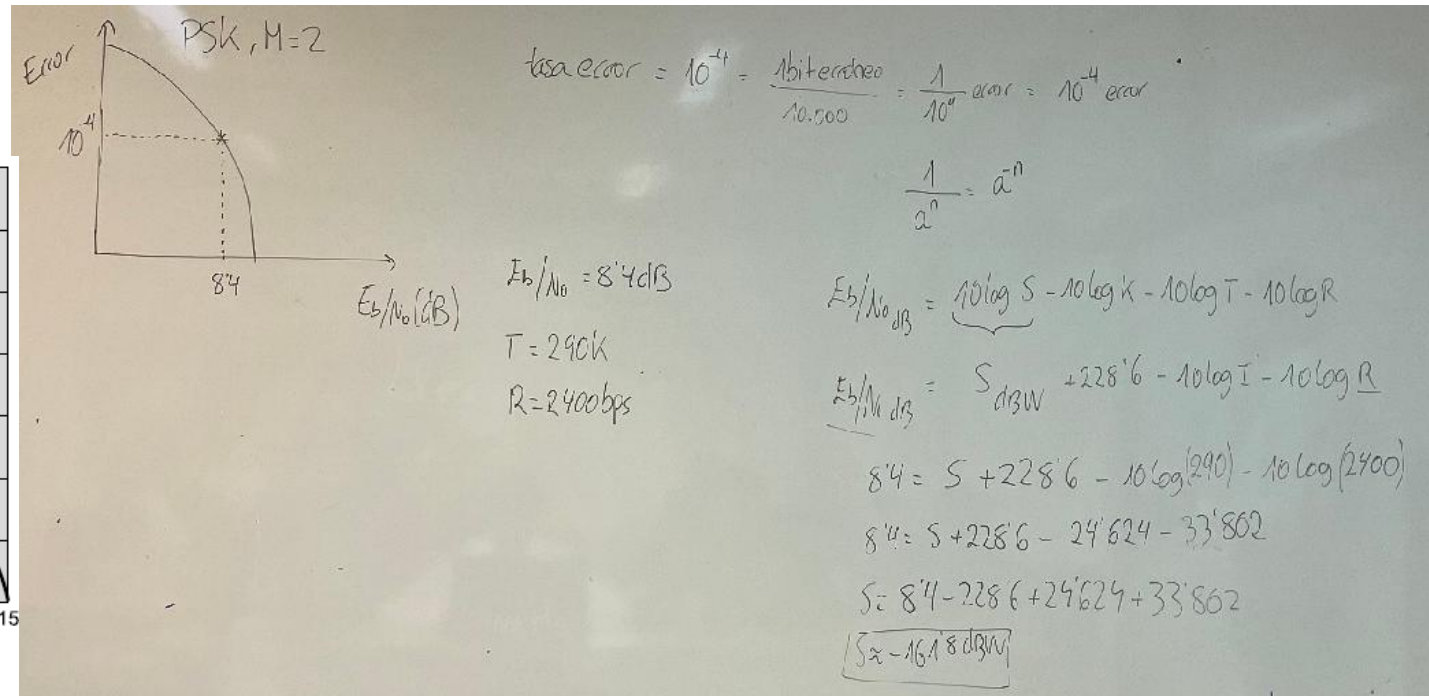 PSK, M=2
Error
10^-4
8'4
Eb/No (dB)
tasa error = 10^-4 = 1bit erróneo / 10.000 = 1/10^4 error = 10^-4 error
1/a^n = a^-n
Eb/No = 8'4dB
T = 290K
R = 2400bps
Eb/No dB = 10log S - 10log K - 10log T - 10log R
Eb/No dB = S dBW + 228'6 - 10log T - 10log R
8'4 = S + 228'6 - 10log(290) - 10log(2400)
8'4 = S + 228'6 - 24'624 - 33'802
S = 8'4 - 228'6 + 24'624 + 33'802
S ≈ -161'8 dBW
15